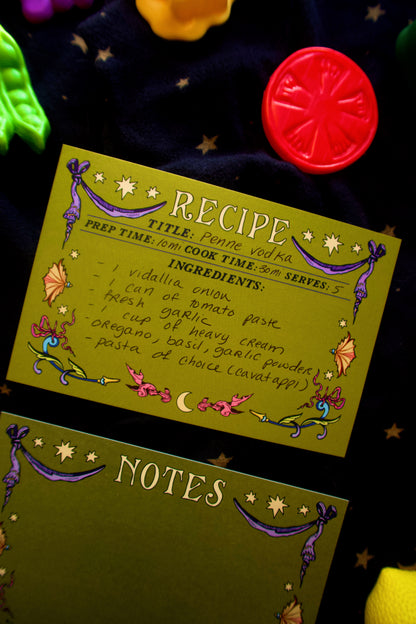 RECIPE
TITLE: Penne Vodka
PREP TIME: 10mi COOK TIME: 30mi SERVES: 5
INGREDIENTS:
- 1 vidallia onion
- 1 can of tomato paste
- fresh garlic
- 1 cup of heavy cream
- oregano, basil, garlic powder
- pasta of choice (cavatappi)
NOTES